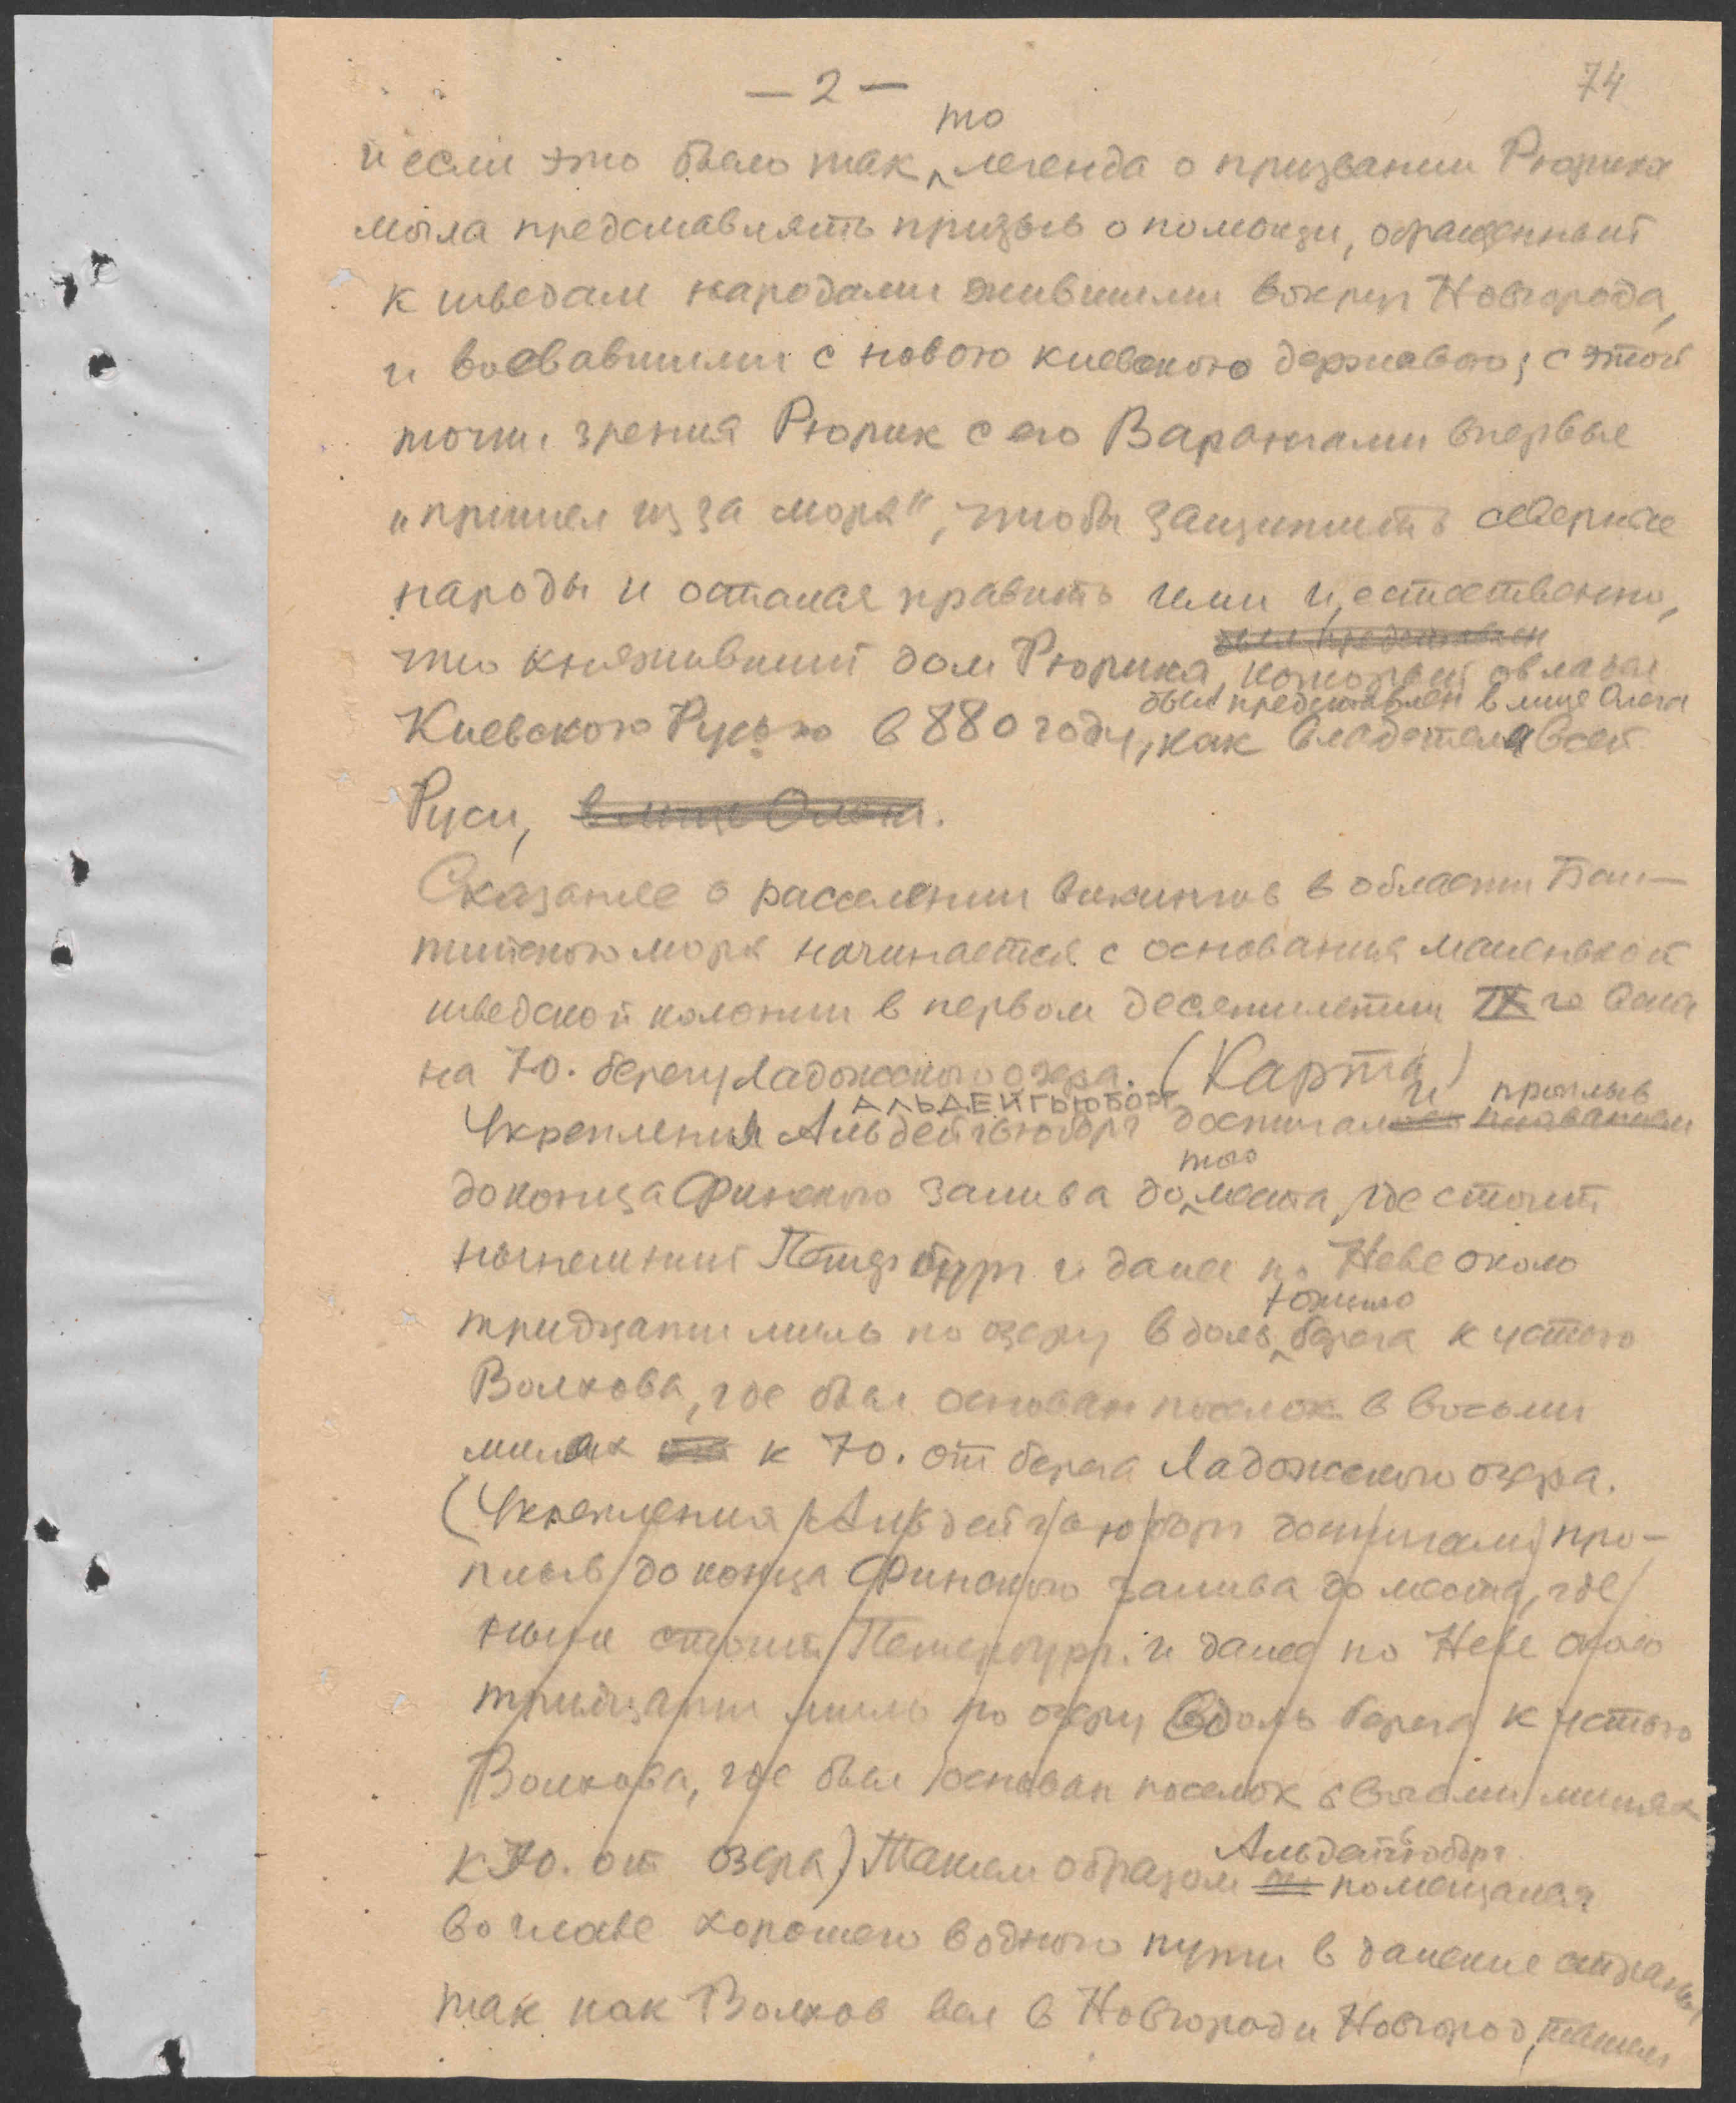 — 2 —
74
то
и если это было так легенда о призвании Рюрика
могла представлять призыв о помощи, обращенный
к шведам народами жившими вокруг Новгорода,
и воевавшими с новою киевскою державою; с этой
точки зрения Рюрик с его Варангами впервые
„пришел из за моря“, чтобы защитить северные
народы и остался править ими и, естественно,
был представлен
что княживший дом Рюрика, который овладел
был представлен в лице Олега
Киевскою Русью в 880 году, как владетеля всей
Руси, в лице Олега.
Сказание о расселении викингов в области Бал-
тийского моря начинается с основания маленькой
шведской колонии в первом десятилетии IX го века
на Ю. берегу Ладожского озера. (Карта)
АЛЬДЕЙГЬЮБОРГ и проплыв
Укрепления Альдейгьюборг достигали
того
до конца Финского залива до места, где стоит
нынешний Петербург и далее по Неве около
южного
тридцати миль по озеру вдоль берега к устью
Волхова, где был основан поселок в восьми
милях к Ю. от берега Ладожского озера.
(Укрепления Альдейгьюборг достигали про-
плыв до конца Финского залива до места, где
ныне стоит Петербург. и далее по Неве около
тридцати миль по озеру вдоль берега к устью
Волхова, где был основан поселок в восьми милях
к Ю. от озера) Таким образом помещался
Альдейгьюборг
во главе хорошего водного пути в далекие страны,
так как Волхов вел в Новгород и Новгород, таким